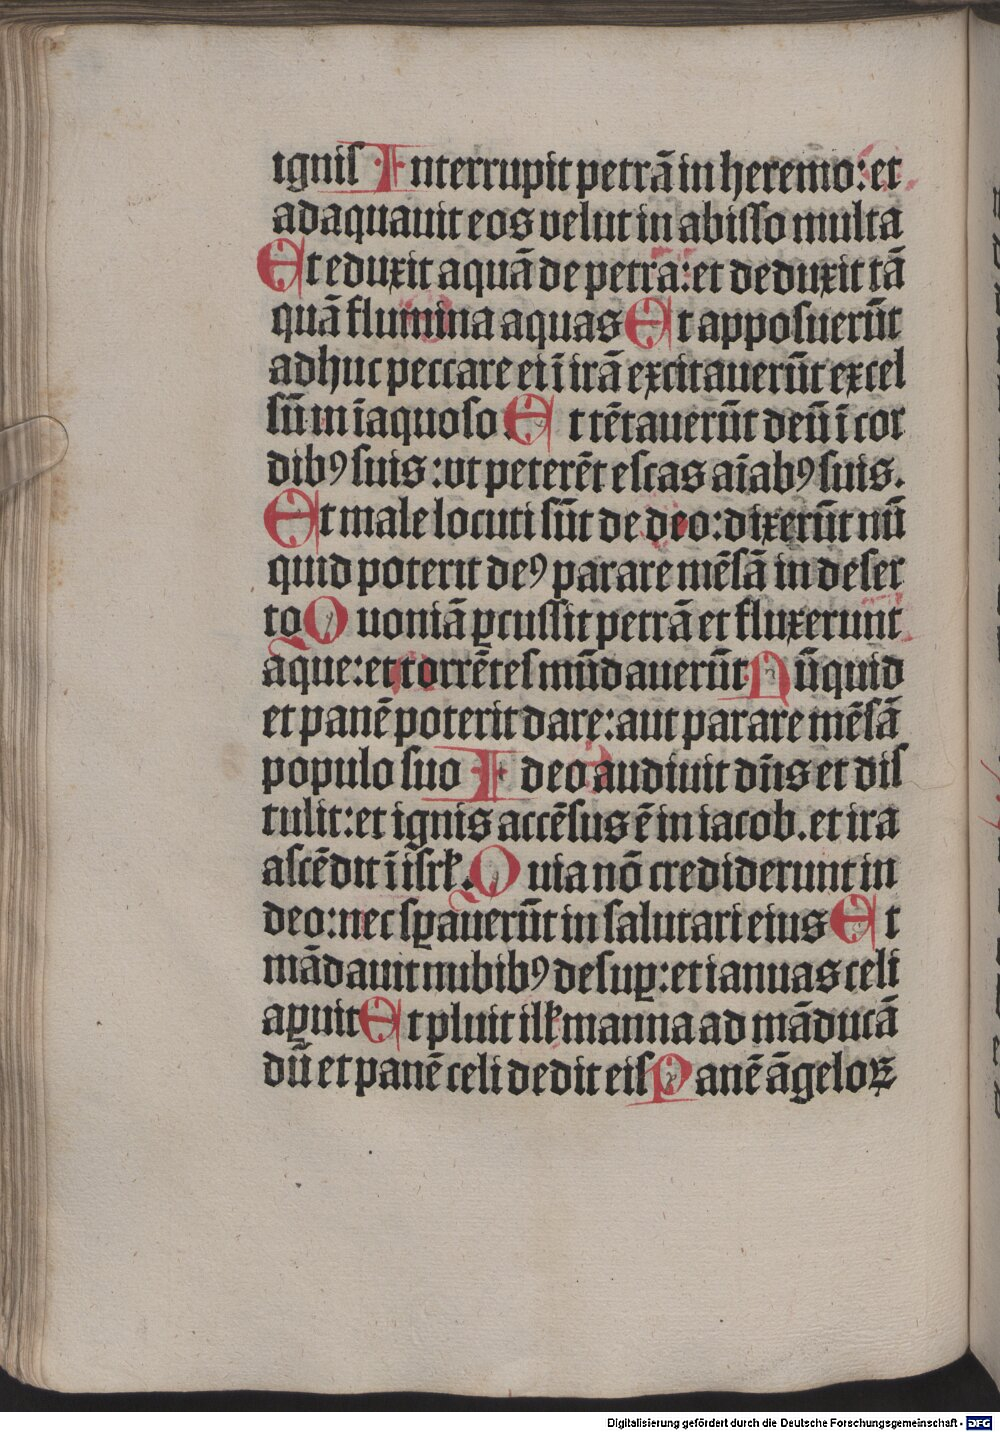 igniſ Interrupit petrā in heremo: et
adaquauit eos velut in abiſſo multa
Et eduxit aquā de petra: et deduxit tā
quā flumina aquas Et appoſuerūt
adhuc peccare ei ī irā excitauerūt excel
ſū in īaquoſo. Et tētauerūt deū ī cor
dibꝰ ſuis: vt peterēt eſcas aīabꝰ ſuis.
Et male locuti ſūt de deo: dixerūt nū
quid poterit deꝰ parare mēſā in deſer
to Quoniā ꝑcuſſit petrā et fluxerunt
aque: et torrētes mūdauerūt Nūquid
et panē poterit dare: aut parare mēſā
populo ſuo Ideo audiuit dn̄s et diſ
tulit: et ignis accēſus ē in iacob. et ira
aſcēdit ī iſrl̄. Quia nō crediderunt in
deo: nec ſꝑauerūt in ſalutari eius Et
mādauit nubibꝰ deſuꝑ: et ianuas celi
aꝑuit Et pluit ill̄ manna ad māducā
dū et panē celi dedit eiſ Panē āgeloꝝ
Digitalisierung gefördert durch die Deutsche Forschungsgemeinschaft - DFG